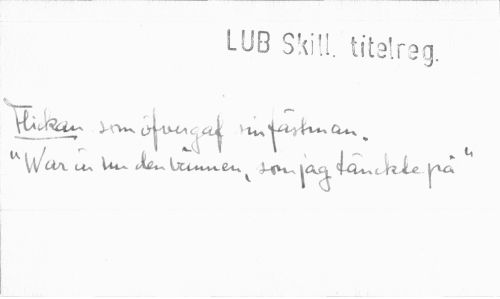 LUB Skill. titelreg.
Flickan som öfvergaf sin fästman.
"War är nu den vännen, som jag tänckte på"